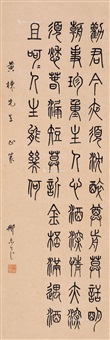 勸君今夜須沈醉尊前莫話明
朝事珍重主人心酒深情亦深
須愁春漏短莫訴金杯滿遇酒
且呵〻人生能幾何
黃 先生正